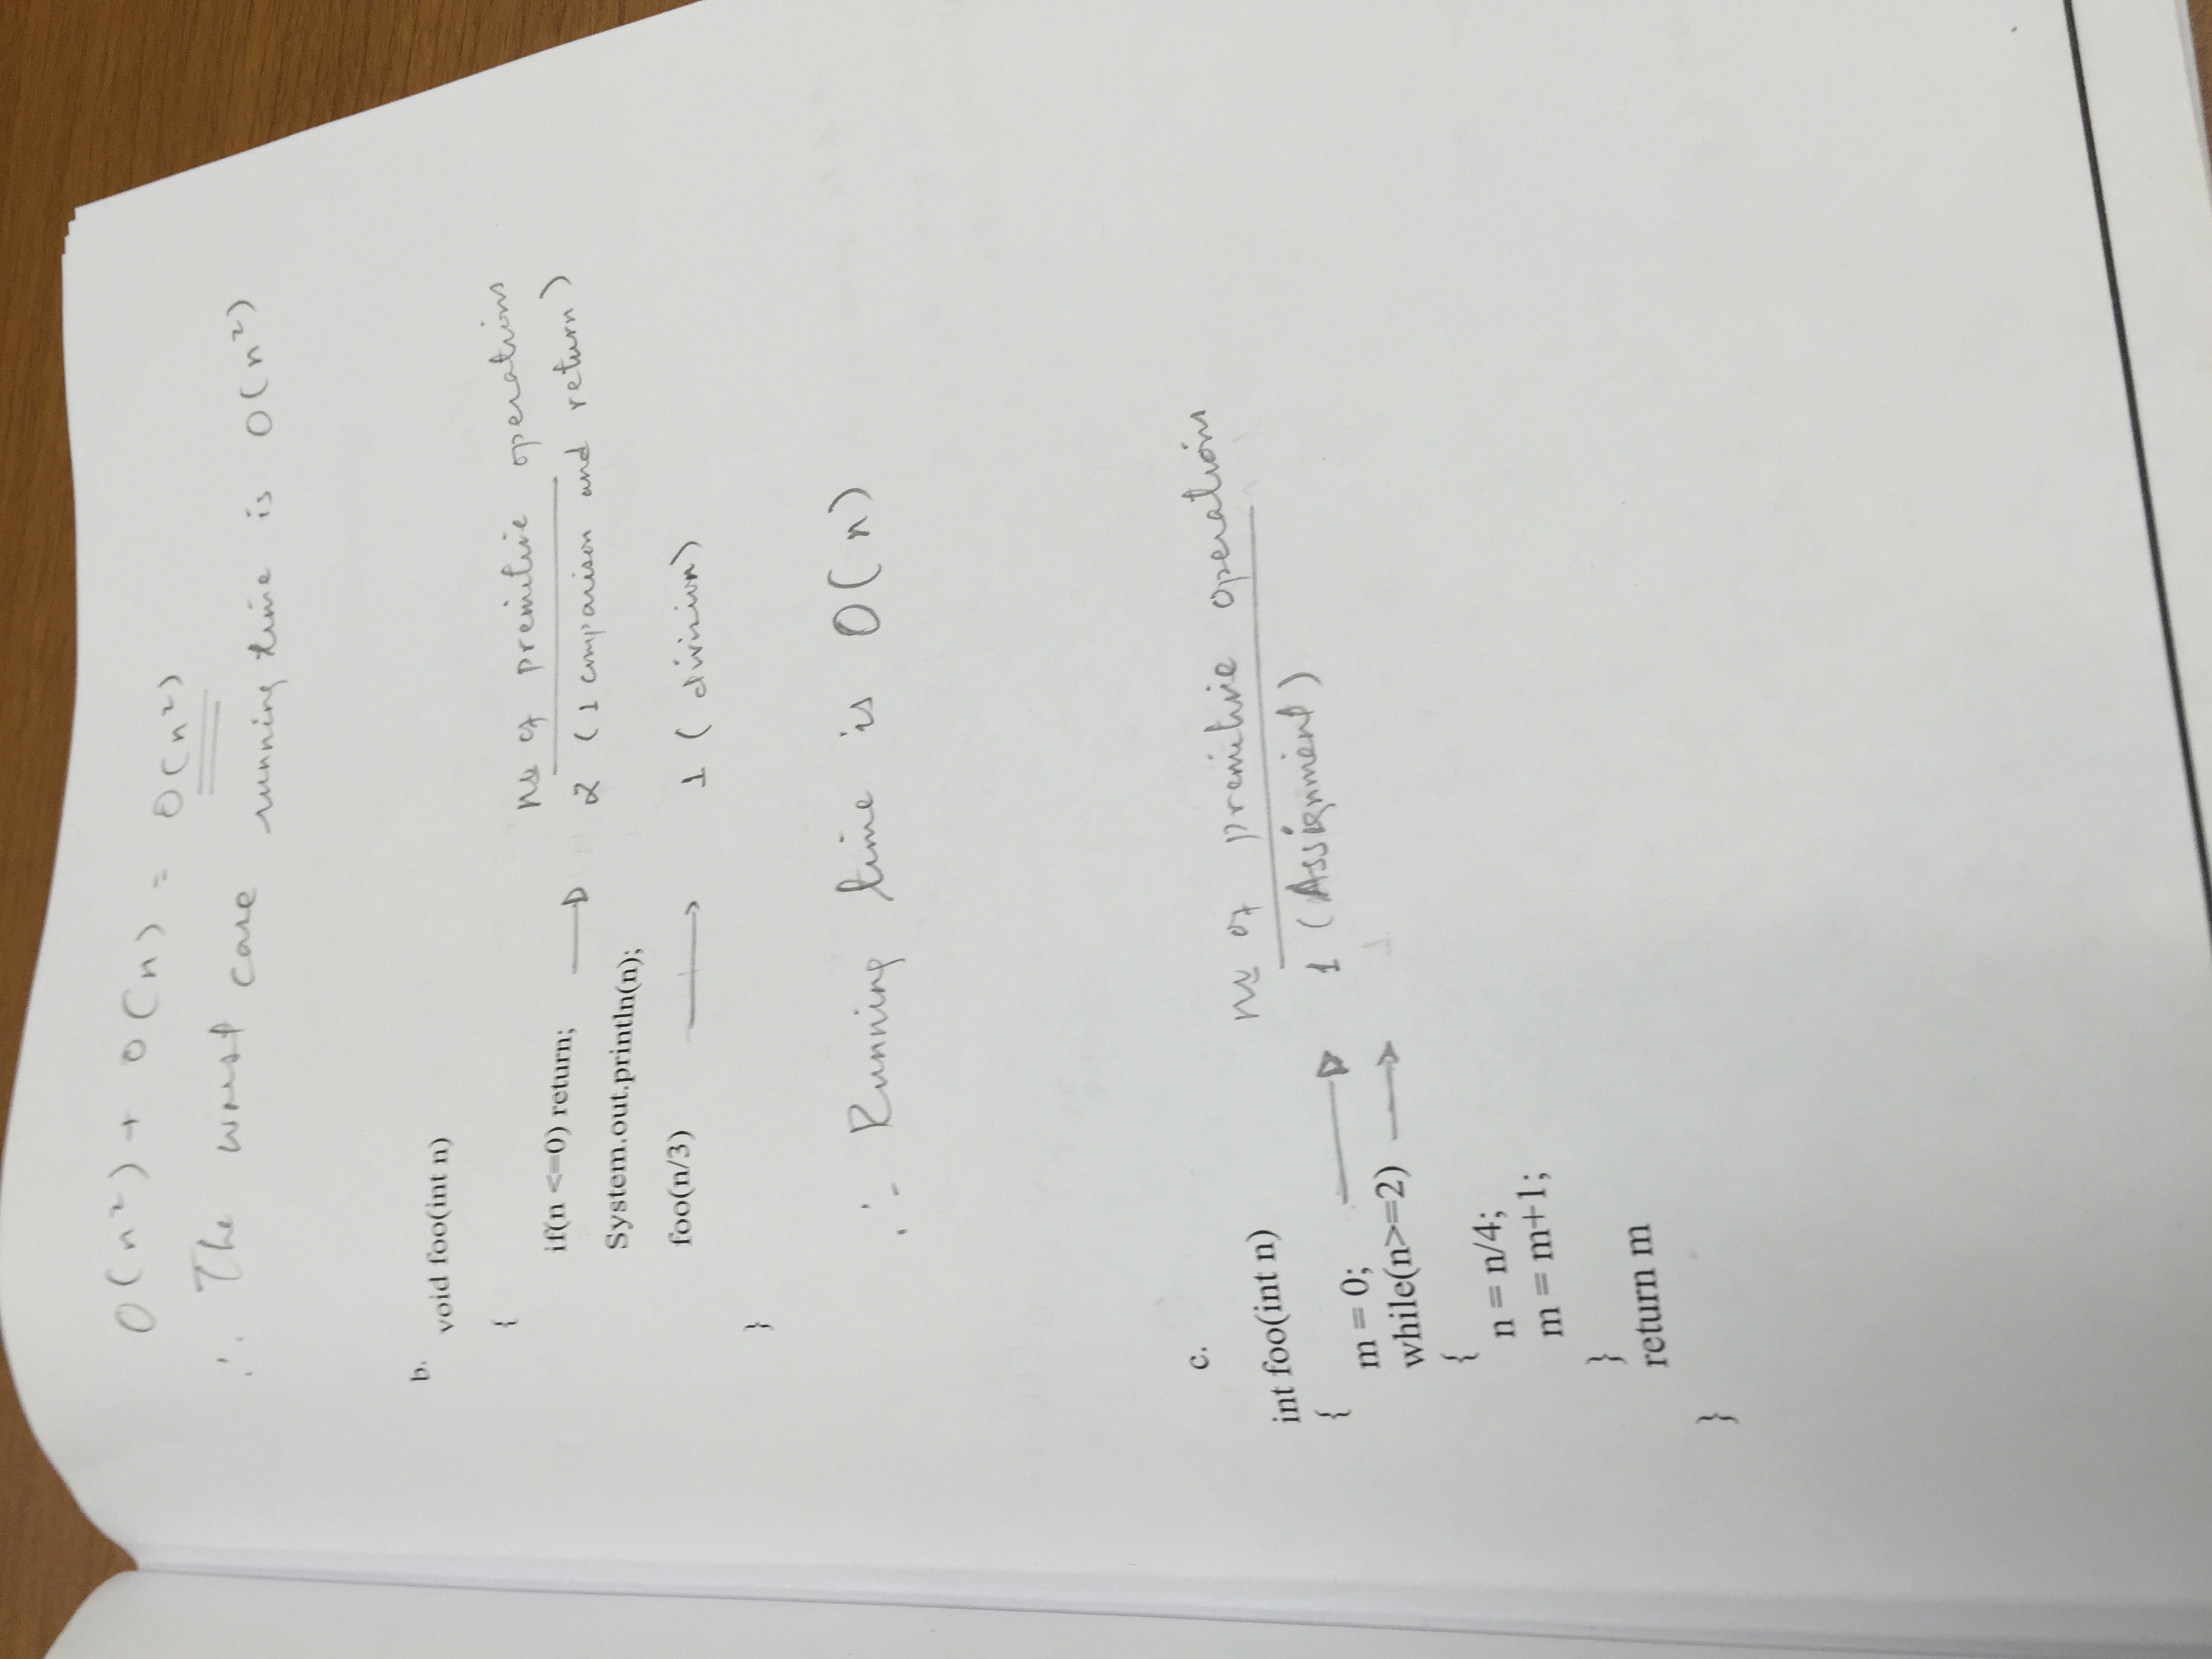 O(n²) + O(n) = O(n²)
∴ The worst case running time is O(n²)
b.
void foo(int n)
{
nº of premitive operations
if(n <=0) return; → 2 (1 comparison and return)
System.out.println(n);
foo(n/3) → 1 (division)
}
∴ Running time is O(n)
c.
nº of premitive operations
int foo(int n)
{
m = 0; → 1 (Assignment)
while(n>=2) →
{
n = n/4;
m = m+1;
}
return m
}